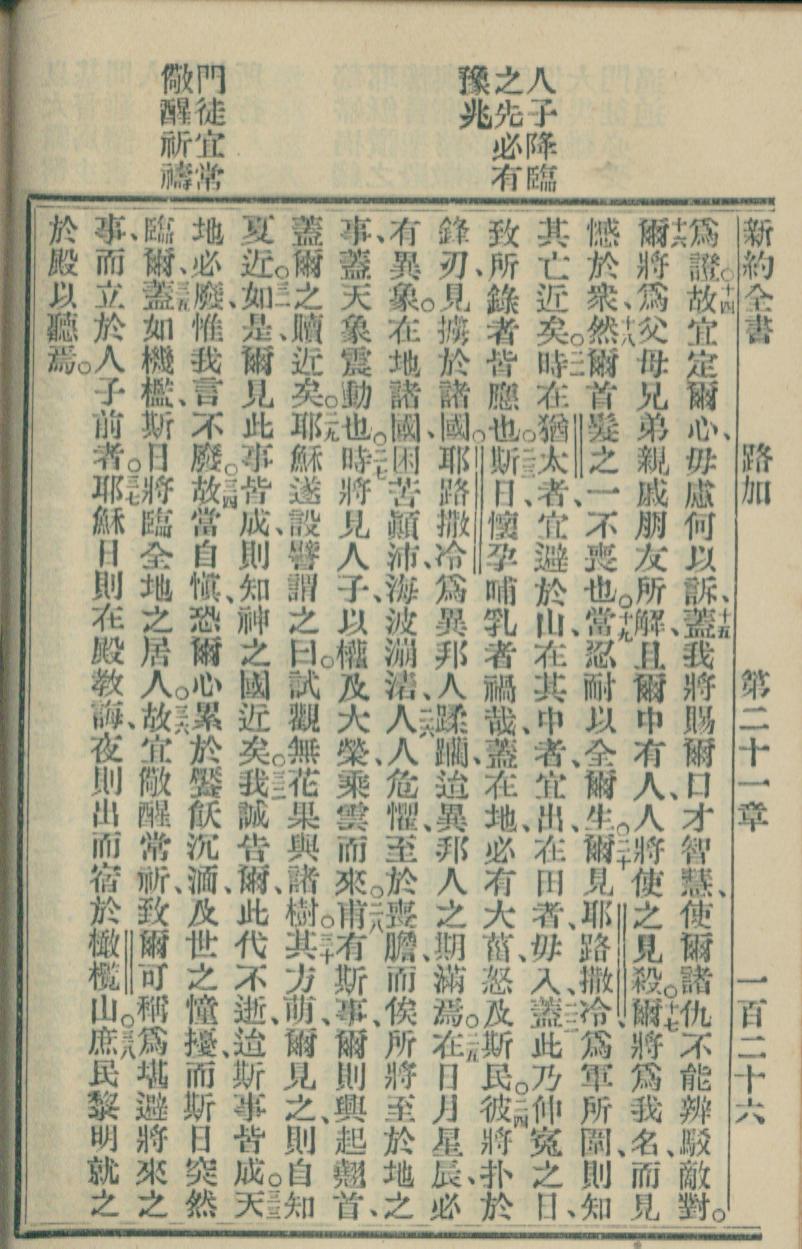 新約全書 路加 第二十一章 一百二十六
人子降臨
之先必有
豫兆
門徒宜常
儆醒祈禱
爲證。十四故宜定爾心、毋慮何以訴、十五蓋我將賜爾口才智慧、使爾諸仇不能辨駁敵對。
十六爾將爲父母兄弟親戚朋友所解、且爾中有人、人將使之見殺。十七爾將爲我名而見
憾於衆、十八然爾首髮之一不喪也。十九當忍耐以全爾生。二十爾見耶路撒冷爲軍所圍、則知
其亡近矣。二一時在猶太者、宜避於山、在其中者、宜出、在田者、毋入、二二蓋此乃伸冤之日、
致所錄者皆應也。二三斯日懷孕哺乳者禍哉、蓋在地必有大菑、怒及斯民。二四彼將扑於
鋒刃、見擄於諸國。耶路撒冷、爲異邦人蹂躪、迨異邦人之期滿焉。二五在日月星辰、必
有異象。在地諸國、困苦顚沛、海波漰濆、二六人人危懼、至於喪膽、而俟所將至於地之
事、蓋天象震動也。二七時將見人子、以權及大榮、乘雲而來。二八甫有斯事、爾則興起翹首、
蓋爾之贖近矣。二九耶穌遂設譬謂之曰、試觀無花果與諸樹。三十其方萌、爾見之、則自知
夏近。三一如是、爾見此事皆成、則知神之國近矣。三二我誠告爾、此代不逝、迨斯事皆成。三三天
地必廢、惟我言不廢。三四故當自愼、恐爾心累於饜飫沉湎、及世之憧擾、而斯日突然
臨爾、三五蓋如機檻、斯日將臨全地之居人。三六故宜儆醒常祈、致爾可稱爲堪避將來之
事、而立於人子前者。三七耶穌日則在殿教誨、夜則出而宿於橄欖山。三八庶民黎明就之
於殿以聽焉。